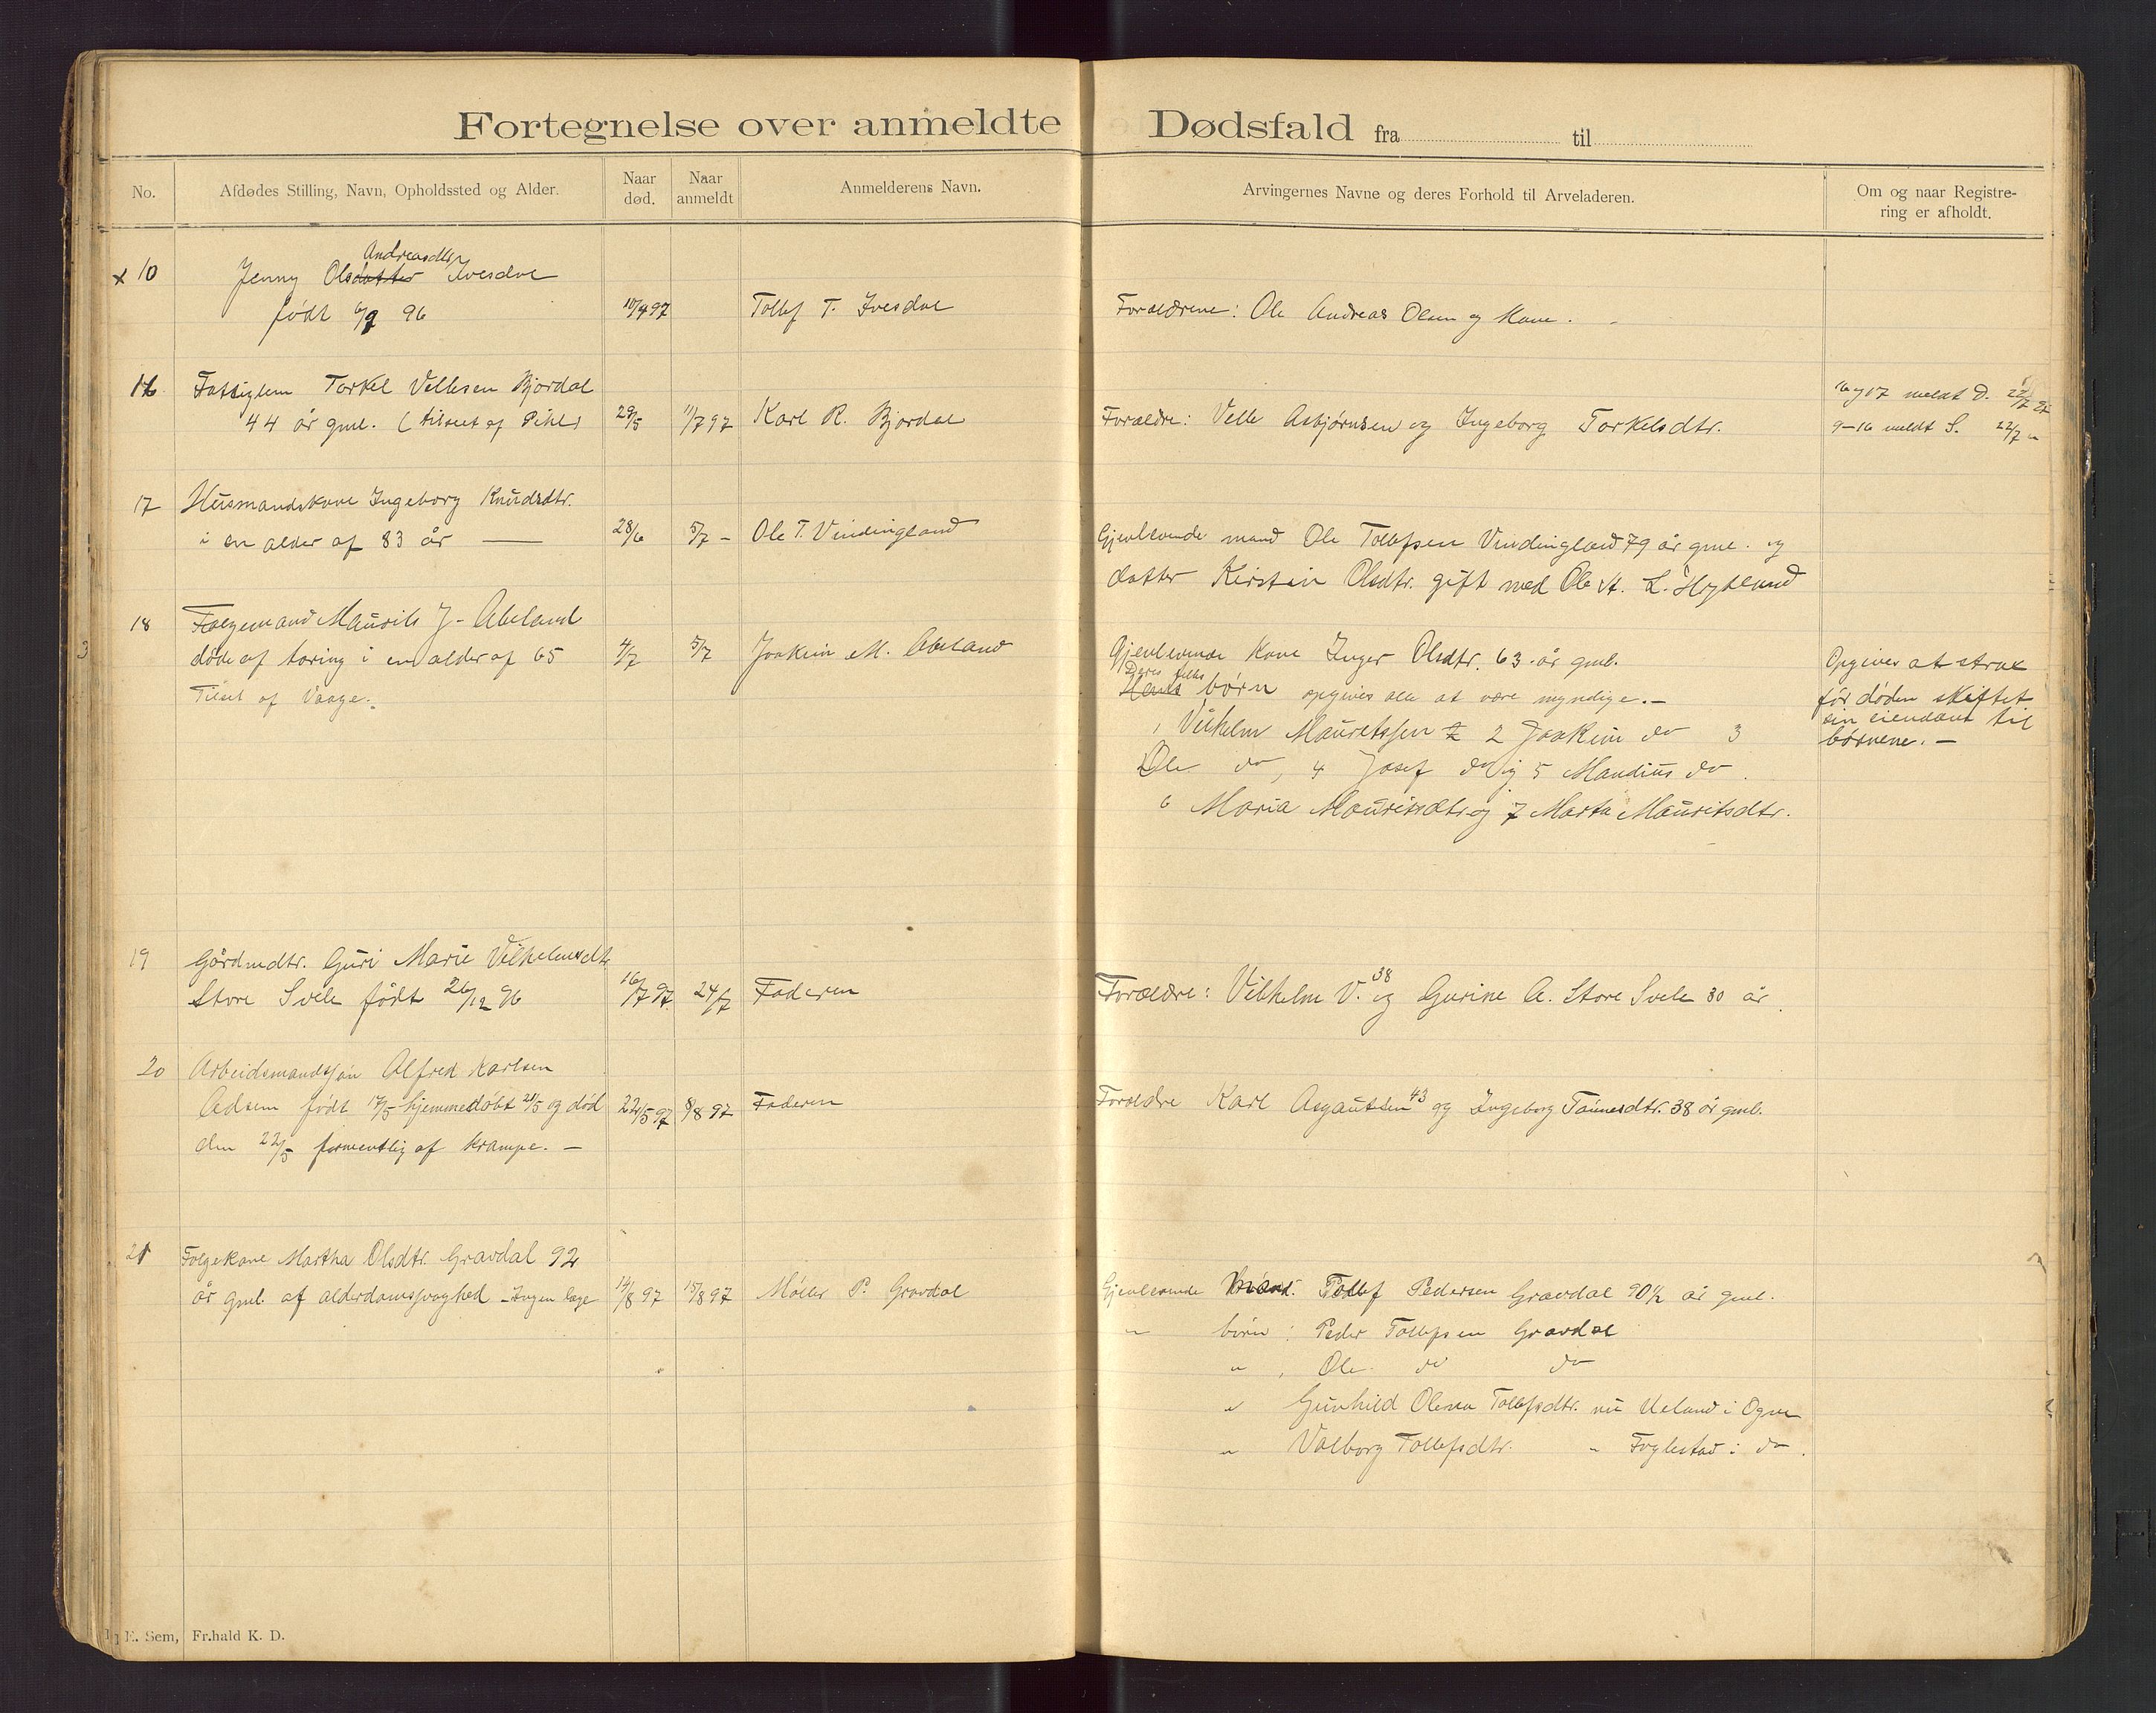 Fortegnelse over anmeldte Dødsfald fra til
No.
Afdødes Stilling, Navn, Opholdssted og Alder.
Naar død.
Naar anmeldt
Anmelderens Navn.
Arvingernes Navne og deres Forhold til Arveladeren.
Om og naar Registrering er afholdt.
Andreasdtr
x 10 Jenny Olsdatter Ivesdal
født 6/9 96 10/4 97 Tollef T. Ivesdal Forældrene: Ole Andreas Olsen og Kone.
16 Fattiglem Torkel Vellesen Bjordal 16 og 17 meldt D. 22/7 97
44 år gml. (tilseet af Pihl) 29/5 11/7 97 Karl R. Bjordal Forældre: Velle Asbjørnsen og Ingeborg Torkelsdtr. 9-16 meldt S. 22/7 "
17 Husmandskone Ingeborg Knudsdtr.
i en alder af 83 år — 28/6 5/7 - Ole T. Vindingland Gjenlevende mand Ole Tollefsen Vindingland 79 år gml. og
datter Kirstin Olsdtr. gift med Ole A. L. Høyland
18 Folgemand Maurits J. Abeland
døde af tæring i en alder af 65 4/7 5/7 Joakim M. Abeland Gjenlevende Kone Inger Olsdtr. 63 år gml. Opgives at strax
Tilset af Vaage. Deres fælles
Hans børn opgives alle at være myndige. - før døden skiftet
1 Vilhelm Mauritssen 2 Joakim do 3 sin eiendom til
Ole do, 4 Josef do og 5 Mandius do. børnene. -
6 Maria Mauritsdtr og 7 Marta Mauritsdtr.
19 Gårdmdtr. Guri Marie Vilhelmsdtr
Store Svele født 26/12 96 16/7 97 24/7 Faderen Forældre: Vilhelm V. 38 og Gurine A. Store Svele 30 år.
20 Arbeidsmandssøn Alfred Karlsen
Adsem født 17/5 hjemmedøbt 21/5 og død 22/5 97 8/8 97 Faderen Forældre Karl Asgautsen 43 og Ingeborg Tønnesdtr. 38 år gml.
den 22/5 formentlig af krampe. -
21 Folgekone Martha Olsdtr. Gravdal 92
år gml. af alderdomssvaghed - Ingen læge 14/8 97 15/8 97 Møller P. Gravdal Gjenlevende Mand. Tollef Pedersen Gravdal 90 1/2 år gml.
" børn: Peder Tollefsen Gravdal
" , Ole do do
" Gunhild Olena Tollefsdtr. nu Ueland i Ogne
" Valborg Tollefsdtr. " Fuglestad i do.
E. Sem, Fr.hald K. D.